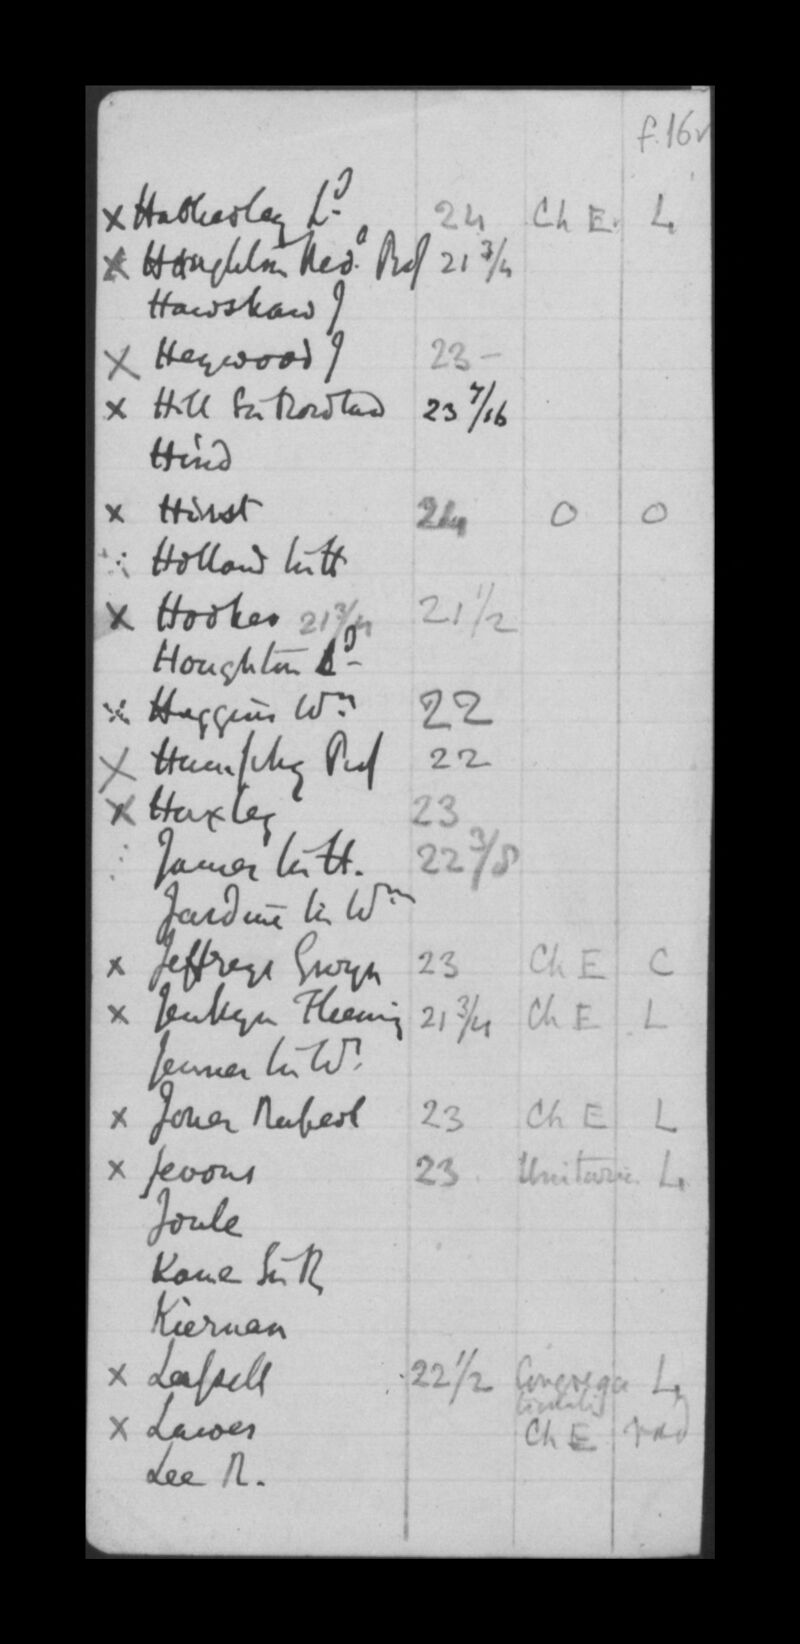 f.16v
x Hatherley Ld 24 Ch E. L
x Haughton Revd Prof 21 3/4
Hawshaw J
x Heywood J 23 -
x Hill Sir Rowland 23 7/16
Hind
x Hirst 24 0 0
Holland Sir H
x Hooker 21 3/4 21 1/2
Houghton Ld
x Huggins Wm 22
x Humphry Prof 22
x Huxley 23
James Sir H. 22 3/8
Jardine Sir Wm
x Jeffreys Gwyn 23 Ch E C
x Jenkyn Fleeming 21 3/4 Ch E L
Jenner Sir W
x Jones Rupert 23 Ch E L
x Jevons 23 Unitarn. L
Joule
Kane Sir R
Kiernan
x Lassell 22 1/2 Congrega L
x Lawes Ch E rad
Lee R.